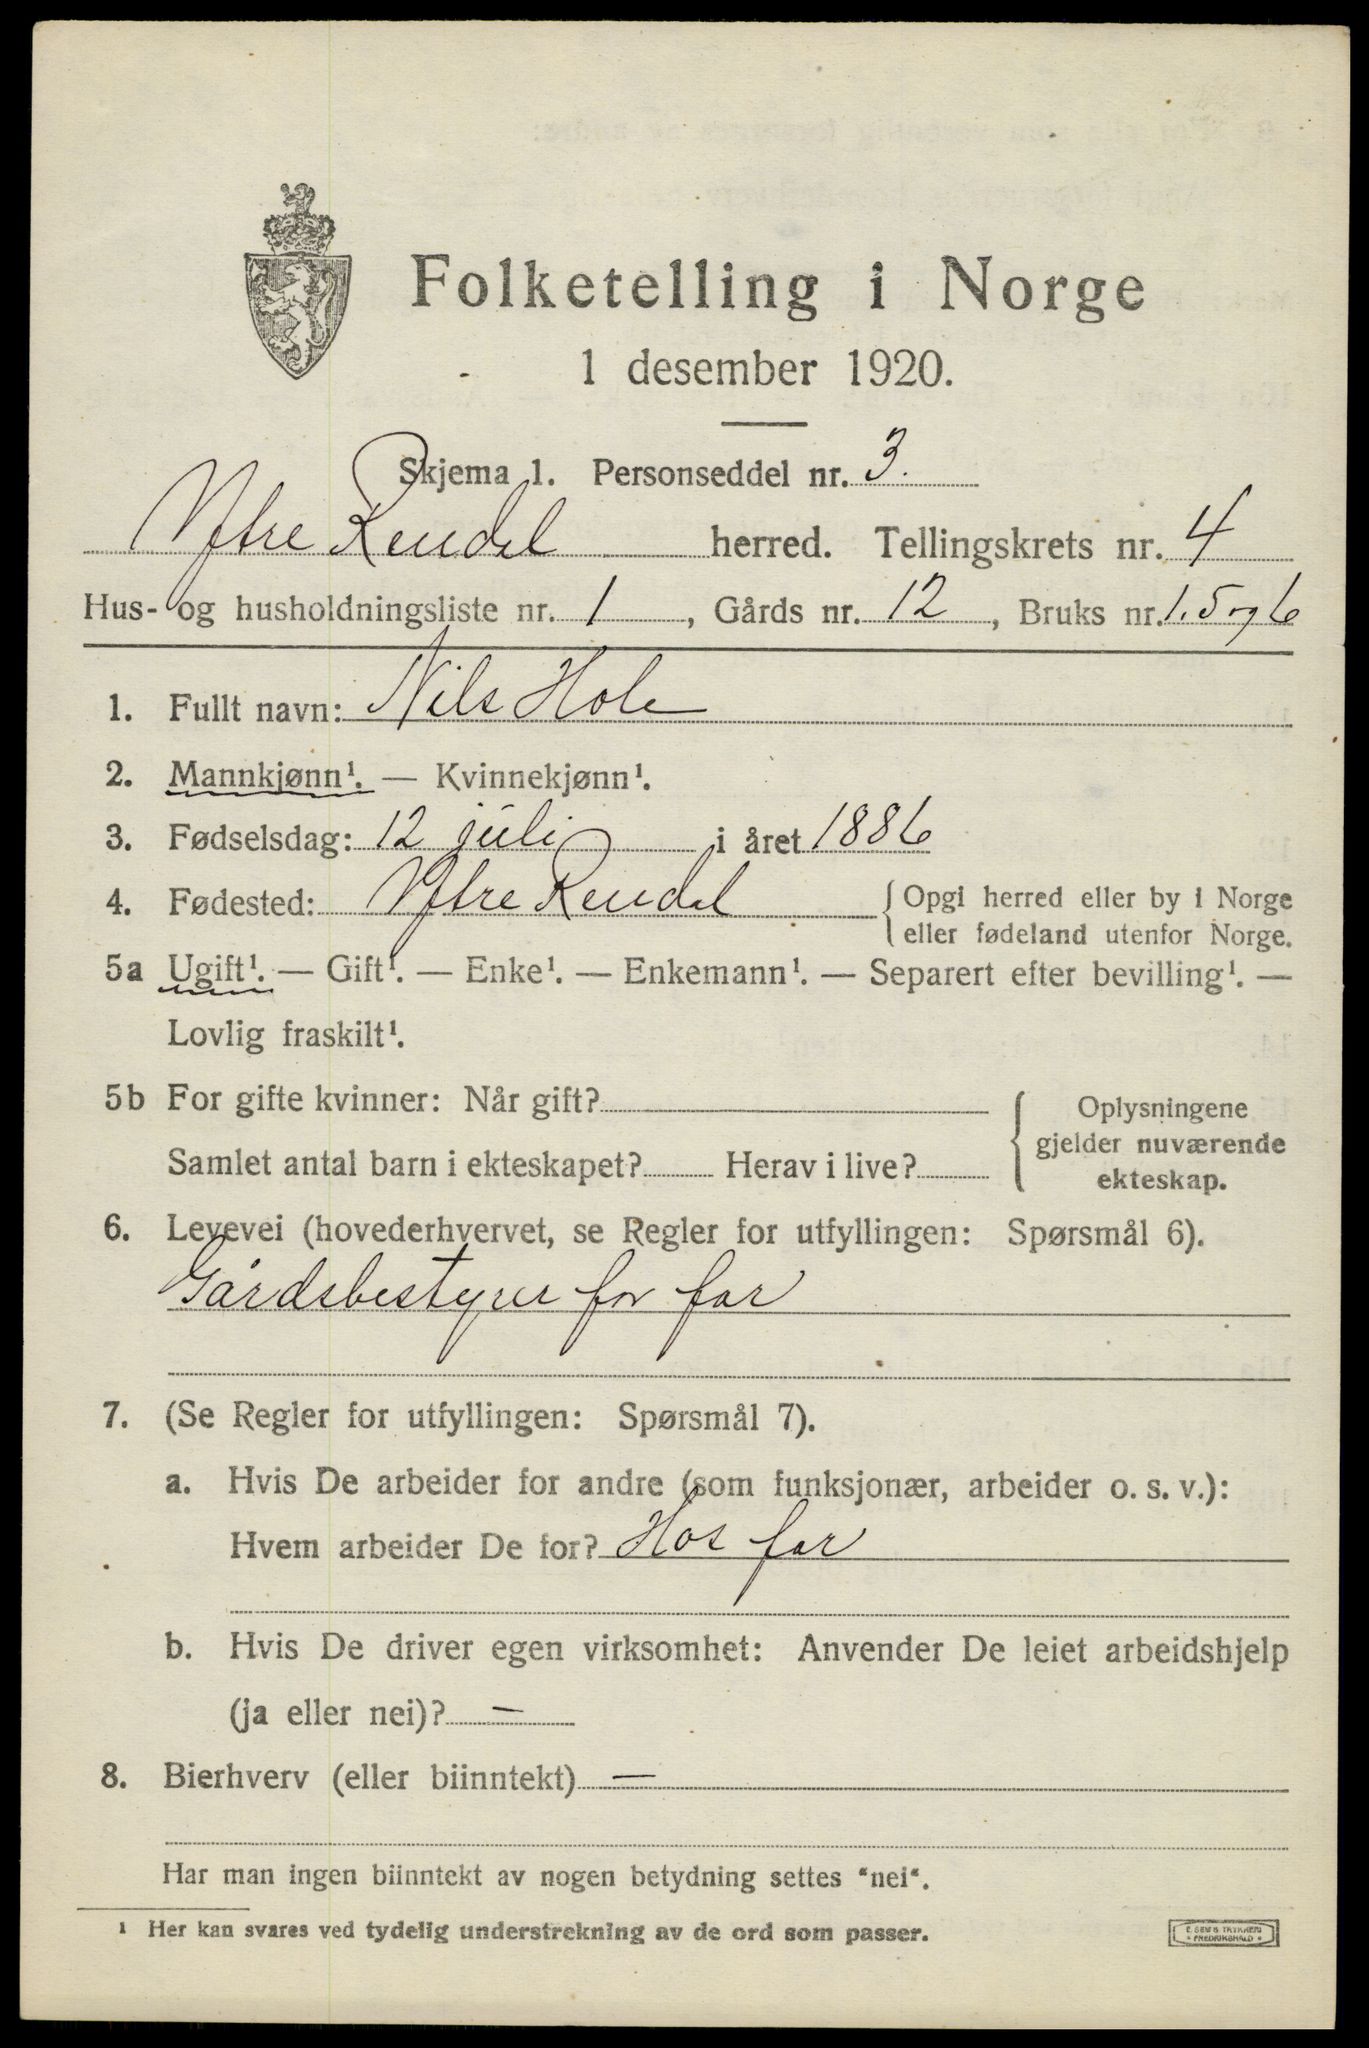 Folketelling i Norge
1 desember 1920.
Skjema 1. Personseddel nr. 3.
Ytre Rendal herred. Tellingskrets nr. 4
Hus- og husholdningsliste nr. 1, Gårds nr. 12, Bruks nr. 1.5 og 6
1. Fullt navn: Nils Hole
2. Mannkjønn¹. — Kvinnekjønn¹.
3. Fødselsdag: 12 juli i året 1886
4. Fødested: Ytre Rendal { Opgi herred eller by i Norge
eller fødeland utenfor Norge.
5a Ugift¹. — Gift¹. — Enke¹. — Enkemann¹. — Separert efter bevilling¹. —
Lovlig fraskilt¹.
5b For gifte kvinner: Når gift?
Samlet antal barn i ekteskapet? Herav i live?
{ Oplysningene
gjelder nuværende
ekteskap.
6. Levevei (hovederhvervet, se Regler for utfyllingen: Spørsmål 6).
Gårdsbestyrer for far
7. (Se Regler for utfyllingen: Spørsmål 7).
a. Hvis De arbeider for andre (som funksjonær, arbeider o. s. v.):
Hvem arbeider De for? Hos far
b. Hvis De driver egen virksomhet: Anvender De leiet arbeidshjelp
(ja eller nei)? —
8. Bierhverv (eller biinntekt) —
Har man ingen biinntekt av nogen betydning settes "nei".
¹ Her kan svares ved tydelig understrekning av de ord som passer.